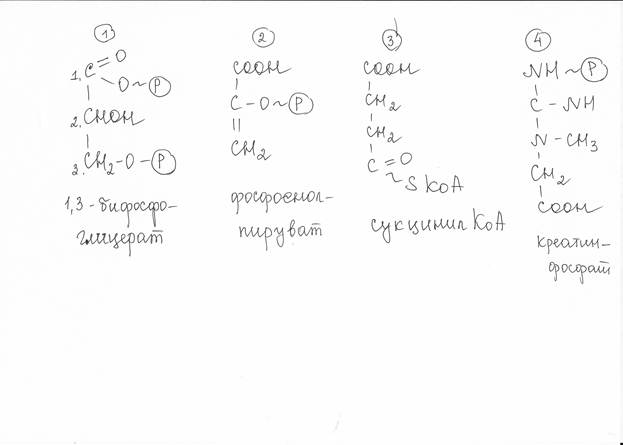 1
1. C=O
O~P
2. CHOH
3. CH2-O-P
1,3-бифосфо-
глицерат
2
COOH
C-O~P
CH2
фосфоенол-
пируват
3
COOH
CH2
CH2
C=O
~SKoA
сукцинил KoA
4
NH~P
C-NH
N-CH3
CH2
COOH
креатин-
фосфат